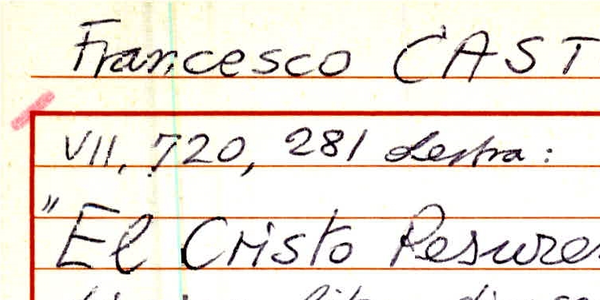 Francesco CAST
VII, 720, 281 destra:
"El Cristo Resures